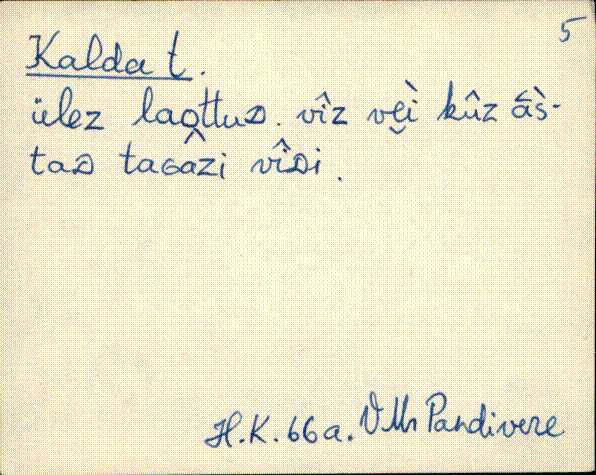 5
Kalda t.
ülez laottuᴅ. vîz vei̬ì kûz ās̀-
taᴅ taɢâzi vîᴅi.
H.K. 66 a. VMr Pandivere